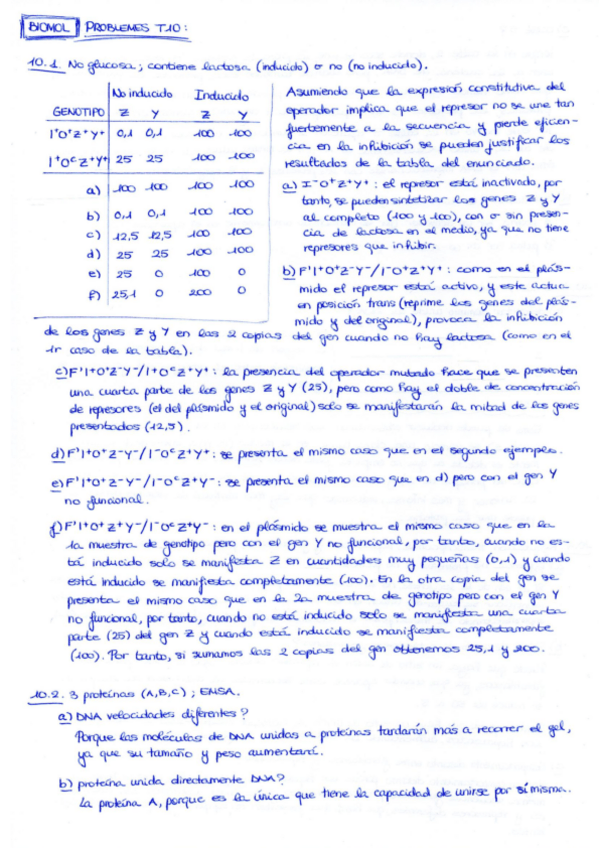 BIOMOL PROBLEMES T.10:
10.1. No glucosa; contiene lactosa (inducido) o no (no inducido).
No inducido Inducido
GENOTIPO Z Y Z Y
I+O+Z+Y+ 0,1 0,1 100 100
I+OcZ+Y+ 25 25 100 100
a) 100 100 100 100
b) 0,1 0,1 100 100
c) 12,5 12,5 100 100
d) 25 25 100 100
e) 25 0 100 0
F) 25,1 0 200 0
Asumiendo que la expresión constitutiva del
operador implica que el represor no se une tan
fuertemente a la secuencia y pierde eficien-
cia en la inhibición se pueden justificar los
resultados de la tabla del enunciado.
a) I-O+Z+Y+: el represor está inactivado, por
tanto, se pueden sintetizar los genes Z y Y
al completo (100 y 100), con o sin presen-
cia de lactosa en el medio, ya que no tiene
represores que inhibir.
b) F'I+O+Z-Y-/I-O+Z+Y+: como en el plás-
mido el represor está activo, y este actua
en posición trans (reprime los genes del plás-
mido y del original), provoca la inhibición
de los genes Z y Y en las 2 copias del gen cuando no hay lactosa (como en el
1r caso de la tabla).
c) F'I+O+Z-Y-/I+OcZ+Y+: la presencia del operador mutado hace que se presenten
una cuarta parte de los genes Z y Y (25), pero como hay el doble de concentración
de represores (el del plásmido y el original) solo se manifestarán la mitad de los genes
presentados (12,5).
d) F'I+O+Z-Y-/I-OcZ+Y+: se presenta el mismo caso que en el segundo ejemplo.
e) F'I+O+Z-Y-/I-OcZ+Y-: se presenta el mismo caso que en d) pero con el gen Y
no funcional.
f) F'I+O+Z+Y-/I-OcZ+Y-: en el plásmido se muestra el mismo caso que en la
1a muestra de genotipo pero con el gen Y no funcional, por tanto, cuando no es-
tá inducido solo se manifiesta Z en cuantidades muy pequeñas (0,1) y cuando
está inducido se manifiesta completamente (100). En la otra copia del gen se
presenta el mismo caso que en la 2a muestra de genotipo pero con el gen Y
no funcional, por tanto, cuando no está inducido solo se manifiesta una cuarta
parte (25) del gen Z y cuando está inducido se manifiesta completamente
(100). Por tanto, si sumamos las 2 copias del gen obtenemos 25,1 y 200.
10.2. 3 proteínas (A,B,C); EMSA.
a) DNA velocidades diferentes?
Porque las moléculas de DNA unidas a proteínas tardarán más a recorrer el gel,
ya que su tamaño y peso aumentará.
b) proteína unida directamente DNA?
La proteína A, porque es la única que tiene la capacidad de unirse por sí misma.